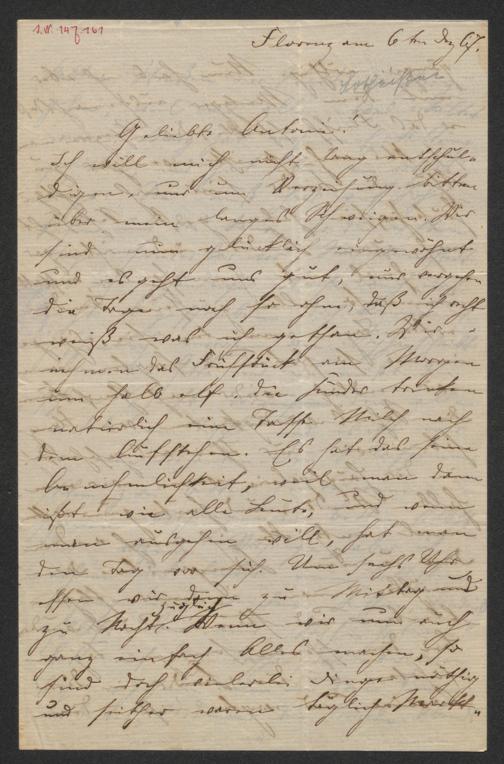 Florenz am 6ten Dez 67.
Geliebte Antonie!
Ich will mich nicht lang entschul-
digen, und um Verzeihung bitten
über mein langes Schweigen. Wir
sind nun glücklich eingewöhnt
und es geht uns gut, nur vergehen
die Tage noch so ohne, daß ich recht
weiß was ich gethan. Wir
nehmen das Frühstück am Morgen
um halb elf. Die Kinder trinken
natürlich eine Tasse Milch nach
dem Aufstehen. Es hat das seine
Annehmlichkeit, weil man dann
ißt wie alle Leute, und wenn
man ausgehen will, hat man
den Tag vor sich. Um sechs Uhr
essen wir dann zu Mittag und
zugleich
zu Nacht. Wenn wir nun auch
ganz einfach Alles machen, so
sind doch vielerlei Dinge nöthig
und seither waren täglich